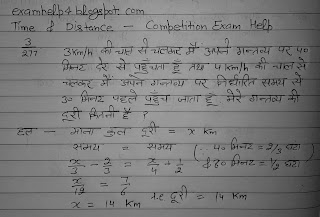 examhelp4.blogspot.com
Time & Distance – Competition Exam Help
3/277 3km/h की चाल से चलकर मैं अपने गन्तव्य पर ४०
मिनट देर से पहुँचता हूँ तथा 4 km/h की चाल से
चलकर मैं अपने गन्तव्य पर निर्धारित समय से
३० मिनट पहले पहुँच जाता हूँ मेरे गन्तव्य की
दूरी कितनी है ?
हल – माना कुल दूरी = x km
समय = समय (∵ ४० मिनट = 2/3 घंटा
x/3 - 2/3 = x/4 + 1/2 & ३० मिनट = 1/2 घंटा
x/12 = 7/6
x = 14 km i.e दूरी = 14 km